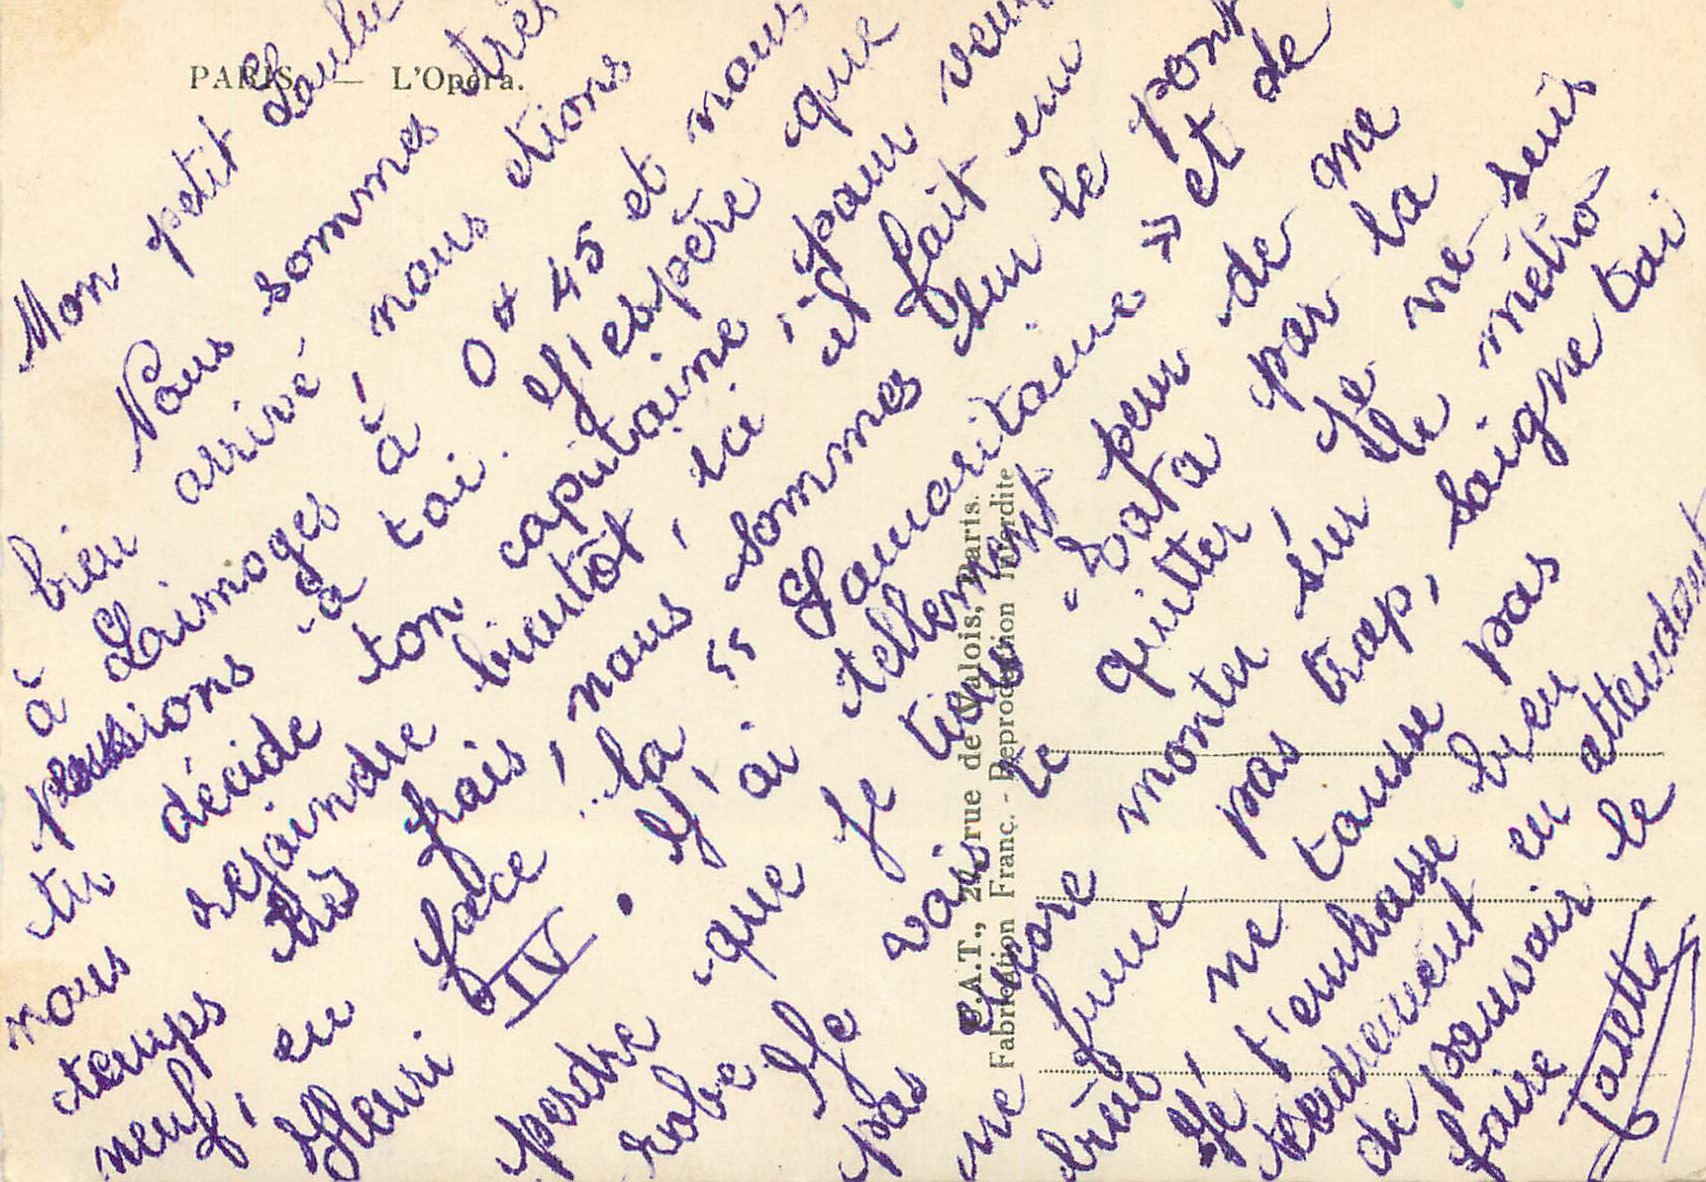 PARIS — L'Opéra.
Mon petit Loulou
Nous sommes très
bien arrivé, nous étions
à Limoges à 0 h 45 et nous
pensions à toi. J'espère que
tu décide ton capitaine, pour
nous rejoindre bientôt, ici il fait un
temps très frais, nous sommes sur le pont
neuf, en face "la Samaritaine" et de
Henri IV. J'ai tellement peur de me
perdre que je tiens "Tata" par la
robe Je vais te quitter, Je ne suis
pas encore monter sur le métro
ne fume pas trop, soigne toi.
ne tousse pas
Je t'embrasse bien
tendrement en attendant
de pouvoir le
faire
Josette
P.A.T., rue de Valois, Paris.
Fabrication Franç. - Reproduction Interdite